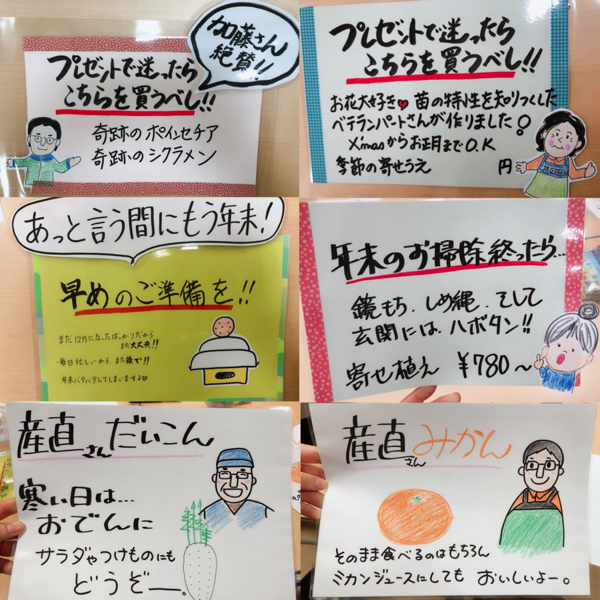 プレゼントで迷ったら
こちらを買うべし!!
加藤さん
絶賛!!
奇跡のポインセチア
奇跡のシクラメン
プレゼントで迷ったら
こちらを買うべし!!
お花大好き♥苗の特性を知りつくした
ベテランパートさんが作りました!
X'masからお正月までO.K
季節の寄せうえ 円
あっと言う間にもう年末!
早めのご準備を!!
まだ12月になったばっかりだから
まだ大丈夫!!
毎日忙しいから、また後で!!
年末バタバタしてしまいますよ
年末のお掃除終ったら…
鏡もち、しめ縄、そして
玄関には、ハボタン!!
寄せ植え ¥780〜
産直さんだいこん
寒い日は…
おでんに
サラダやつけものにも
どうぞー。
産直さんみかん
そのまま食べるのはもちろん
ミカンジュースにしても おいしいよー。